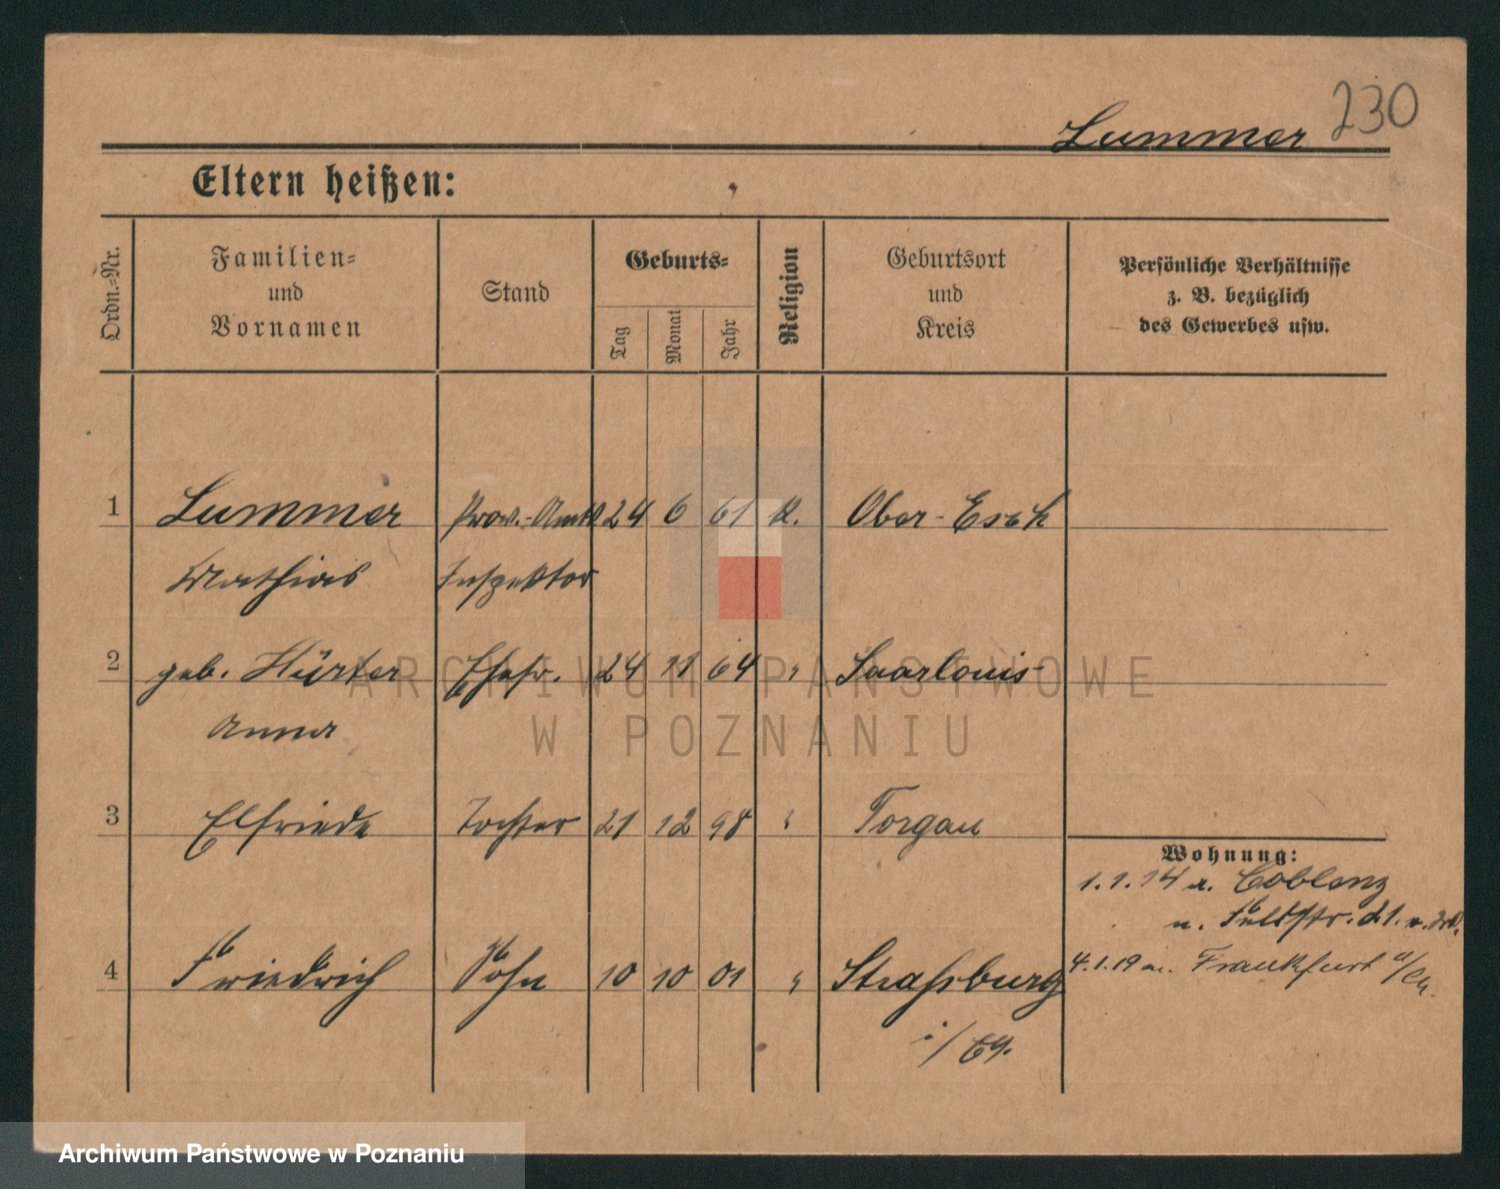 230
Lummer
Eltern heißen:
Ordn.-Nr.
Familien-
und
Vornamen
Stand
Geburts-
Tag
Monat
Jahr
Religion
Geburtsort
und
Kreis
Persönliche Verhältnisse
z. B. bezüglich
des Gewerbes usw.
1 Lummer Prov.-Amts 24 6 61 K. Ober-Esch
Mathias Inspektor
2 geb. Hürter Ehefr. 24 11 64 " Saarlouis
Anna
3 Elfriede Tochter 21 12 98 " Torgau
Wohnung:
1.1.14 a. Coblenz
n. Feldstr. 21.
4 Friedrich Sohn 10 10 01 " Straßburg
4.1.19 n. Frankfurt a/
i/
ARCHIWUM PAŃSTWOWE
W POZNANIU
Archiwum Państwowe w Poznaniu